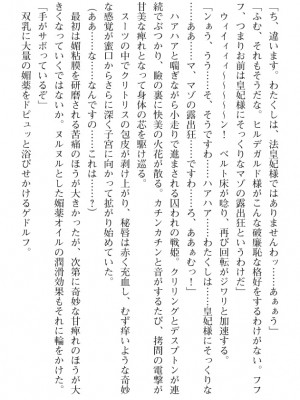 「ち、違います。わたくしは、法皇妃様ではありませんわッ……あぁぁう」
「ふむ、それもそうだな。ヒルデガルド様がこんな破廉恥な格好をするわけがない。フフ
フ、つまりお前は皇妃様にそっくりなマゾの露出狂というわけだ」
ウィイイィィィ〜〜〜〜〜ン！　ベルト床が唸り、再び回転がジワリと加速する。
「んぁう、うう……そ、そうですわ……ハアハア……わたくしは……皇妃様にそっくりな
……あああ……マ、マゾの露出狂……ですわ、ろ、あああむっ！」
ハアハアと喘ぎながら小走りで進まされる囚われの戦姫。クリリングとデスプトンが連
続でぶつかり、瞼の裏に快美の火花が散る。カチンカチンと音がするたび、拷問の電撃が
甘美な痺れとなって身体の芯を駆け巡る。
スーツの中でクリトリスの包皮が剥け上がり、秘唇は赤く充血し、むず痒いような奇妙
な感覚が蜜口からさらに深く子宮に向かって拡がり始めていた。
（ああ……な、なんですの……これは……？）
最初は媚粘膜を研磨される苦痛のほうが大きかったが、次第に奇妙な甘痺れのほうが大
きくなっていくではないか。ヌルヌルとした媚薬オイルの潤滑効果もそれに輪をかけた。
「手がサボっているぞ」
双乳に大量の媚薬をドピュッと浴びせかけるゲドルフ。